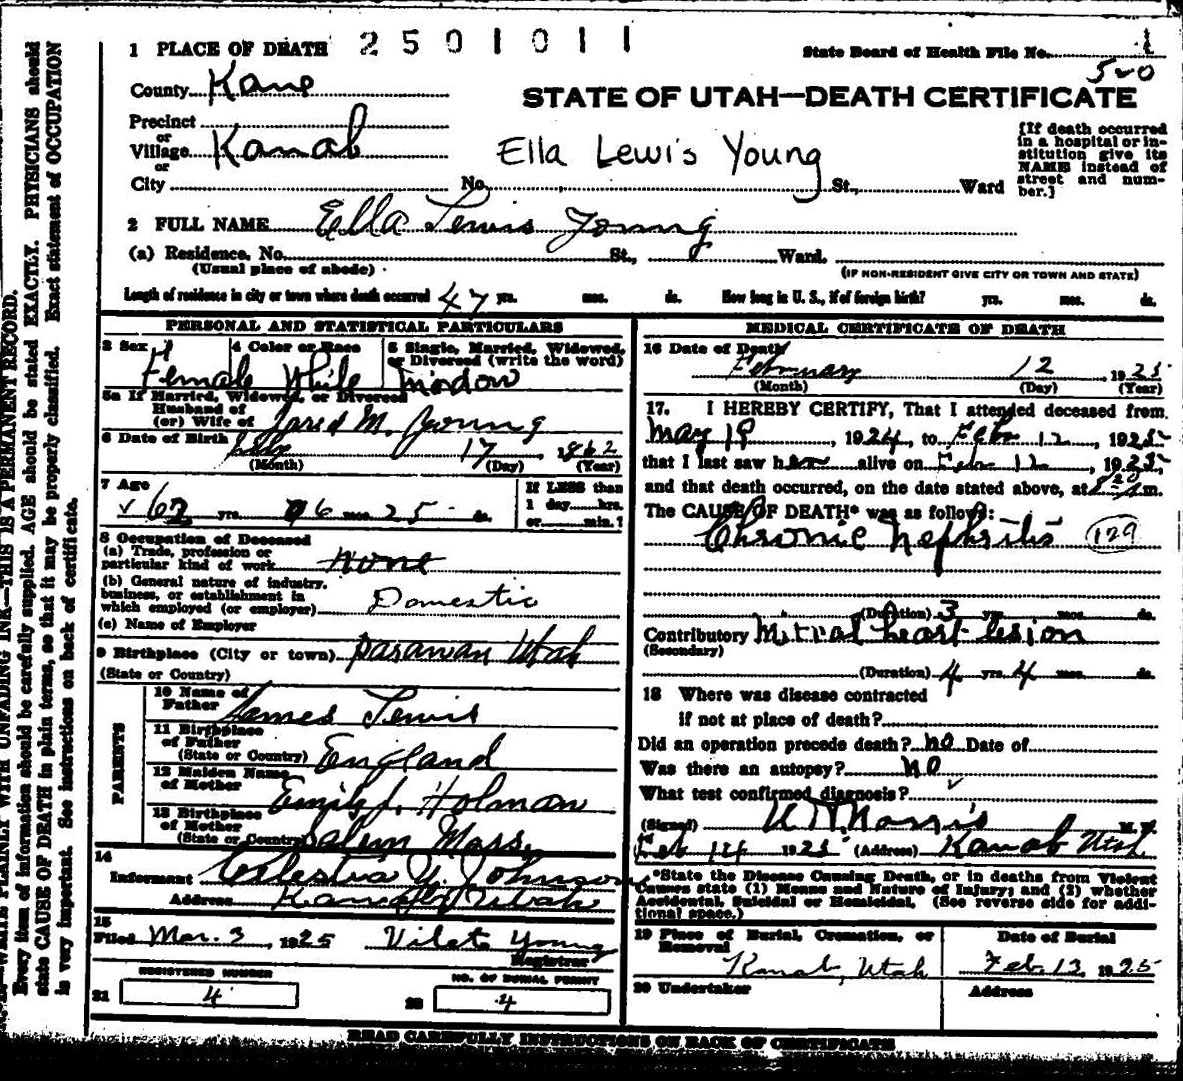 1 PLACE OF DEATH 2501011
State Board of Health File No. 1
520
County Kane
STATE OF UTAH—DEATH CERTIFICATE
Precinct
or
Village Kanab
or
City No. St., Ward
Ella Lewis Young
[If death occurred in a hospital or institution give its NAME instead of street and number.]
2 FULL NAME Ella Lewis Young
(a) Residence. No. St., Ward.
(Usual place of abode)
(IF NON-RESIDENT GIVE CITY OR TOWN AND STATE)
Length of residence in city or town where death occurred 47 yrs. mos. ds. How long in U. S., if of foreign birth? yrs. mos. ds.
PERSONAL AND STATISTICAL PARTICULARS
3 Sex 4 Color or Race 5 Single, Married, Widowed,
or Divorced (write the word)
Female White Widow
5a If Married, Widowed, or Divorced
Husband of
(or) Wife of Jared M. Young
6 Date of Birth 17 1862
(Month) (Day) (Year)
7 Age If LESS than
62 yrs. 6 mos. 25 ds. 1 day hrs.
or min.?
8 Occupation of Deceased
(a) Trade, profession or
particular kind of work None
(b) General nature of industry,
business, or establishment in
which employed (or employer) Domestic
(c) Name of Employer
9 Birthplace (City or town) Parawan Utah
(State or Country)
PARENTS
10 Name of
Father James Lewis
11 Birthplace
of Father
(State or Country) England
12 Maiden Name
of Mother Emily J. Holman
13 Birthplace
of Mother
(State or Country) Salem Mass,
14
Informant Celestia Y. Johnson
Address Kanab Utah
15
Filed Mar. 3, 1925 Vilate Young
Registrar
REGISTERED NUMBER NO. OF BURIAL PERMIT
21 4 22 4
MEDICAL CERTIFICATE OF DEATH
16 Date of Death
February 12 1925
(Month) (Day) (Year)
17. I HEREBY CERTIFY, That I attended deceased from
May 19, 1924, to Feb 12, 1925
that I last saw her alive on Feb 12, 1925,
and that death occurred, on the date stated above, at m.
The CAUSE OF DEATH* was as follows:
Chronic Nephritis 129
(Duration) 3 yrs. mos. ds.
Contributory Mitral heart lesion
(Secondary)
(Duration) 4 yrs. 4 mos. ds.
18 Where was disease contracted
if not at place of death?
Did an operation precede death? no Date of
Was there an autopsy? no
What test confirmed diagnosis?
(Signed) Norris M. D.
Feb 14 1925 (Address) Kanab Utah
*State the Disease Causing Death, or in deaths from Violent
Causes state (1) Means and Nature of Injury; and (2) whether
Accidental, Suicidal or Homicidal. (See reverse side for addi-
tional space.)
19 Place of Burial, Cremation, or Date of Burial
Removal
Kanab, Utah Feb. 13, 1925
20 Undertaker Address
READ CAREFULLY INSTRUCTIONS ON BACK OF CERTIFICATE
WRITE PLAINLY WITH UNFADING INK—THIS IS A PERMANENT RECORD.
Every item of information should be carefully supplied. AGE should be stated EXACTLY. PHYSICIANS should
state CAUSE OF DEATH in plain terms, so that it may be properly classified. Exact statement of OCCUPATION
is very important. See instructions on back of certificate.